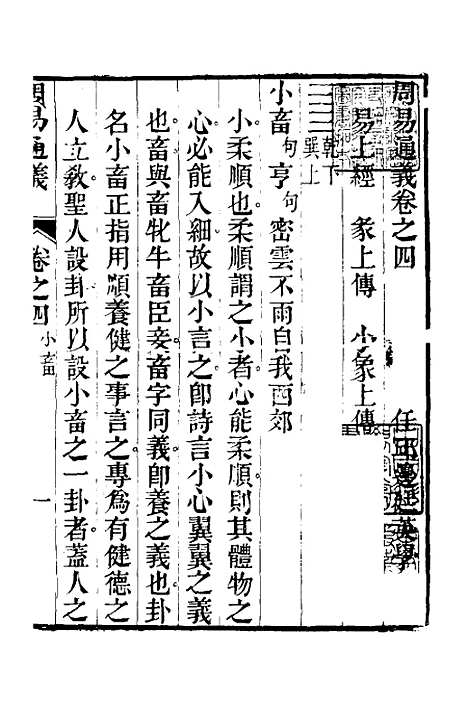 周易通義卷之四
任邱邊廷英學
易上經　彖上傳　小象上傳
乾下
巽上
小畜句亨句密雲不雨自我西郊
小柔順也柔順謂之小者心能柔順則其體物之
心必能入細故以小言之卽詩言小心翼翼之義
也畜與畜牝牛畜臣妾畜字同義卽養之義也卦
名小畜正指用順養健之事言之專為有健德之
人立敎聖人設卦所以設小畜之一卦者蓋人之
周易通義
卷之四
小畜
一